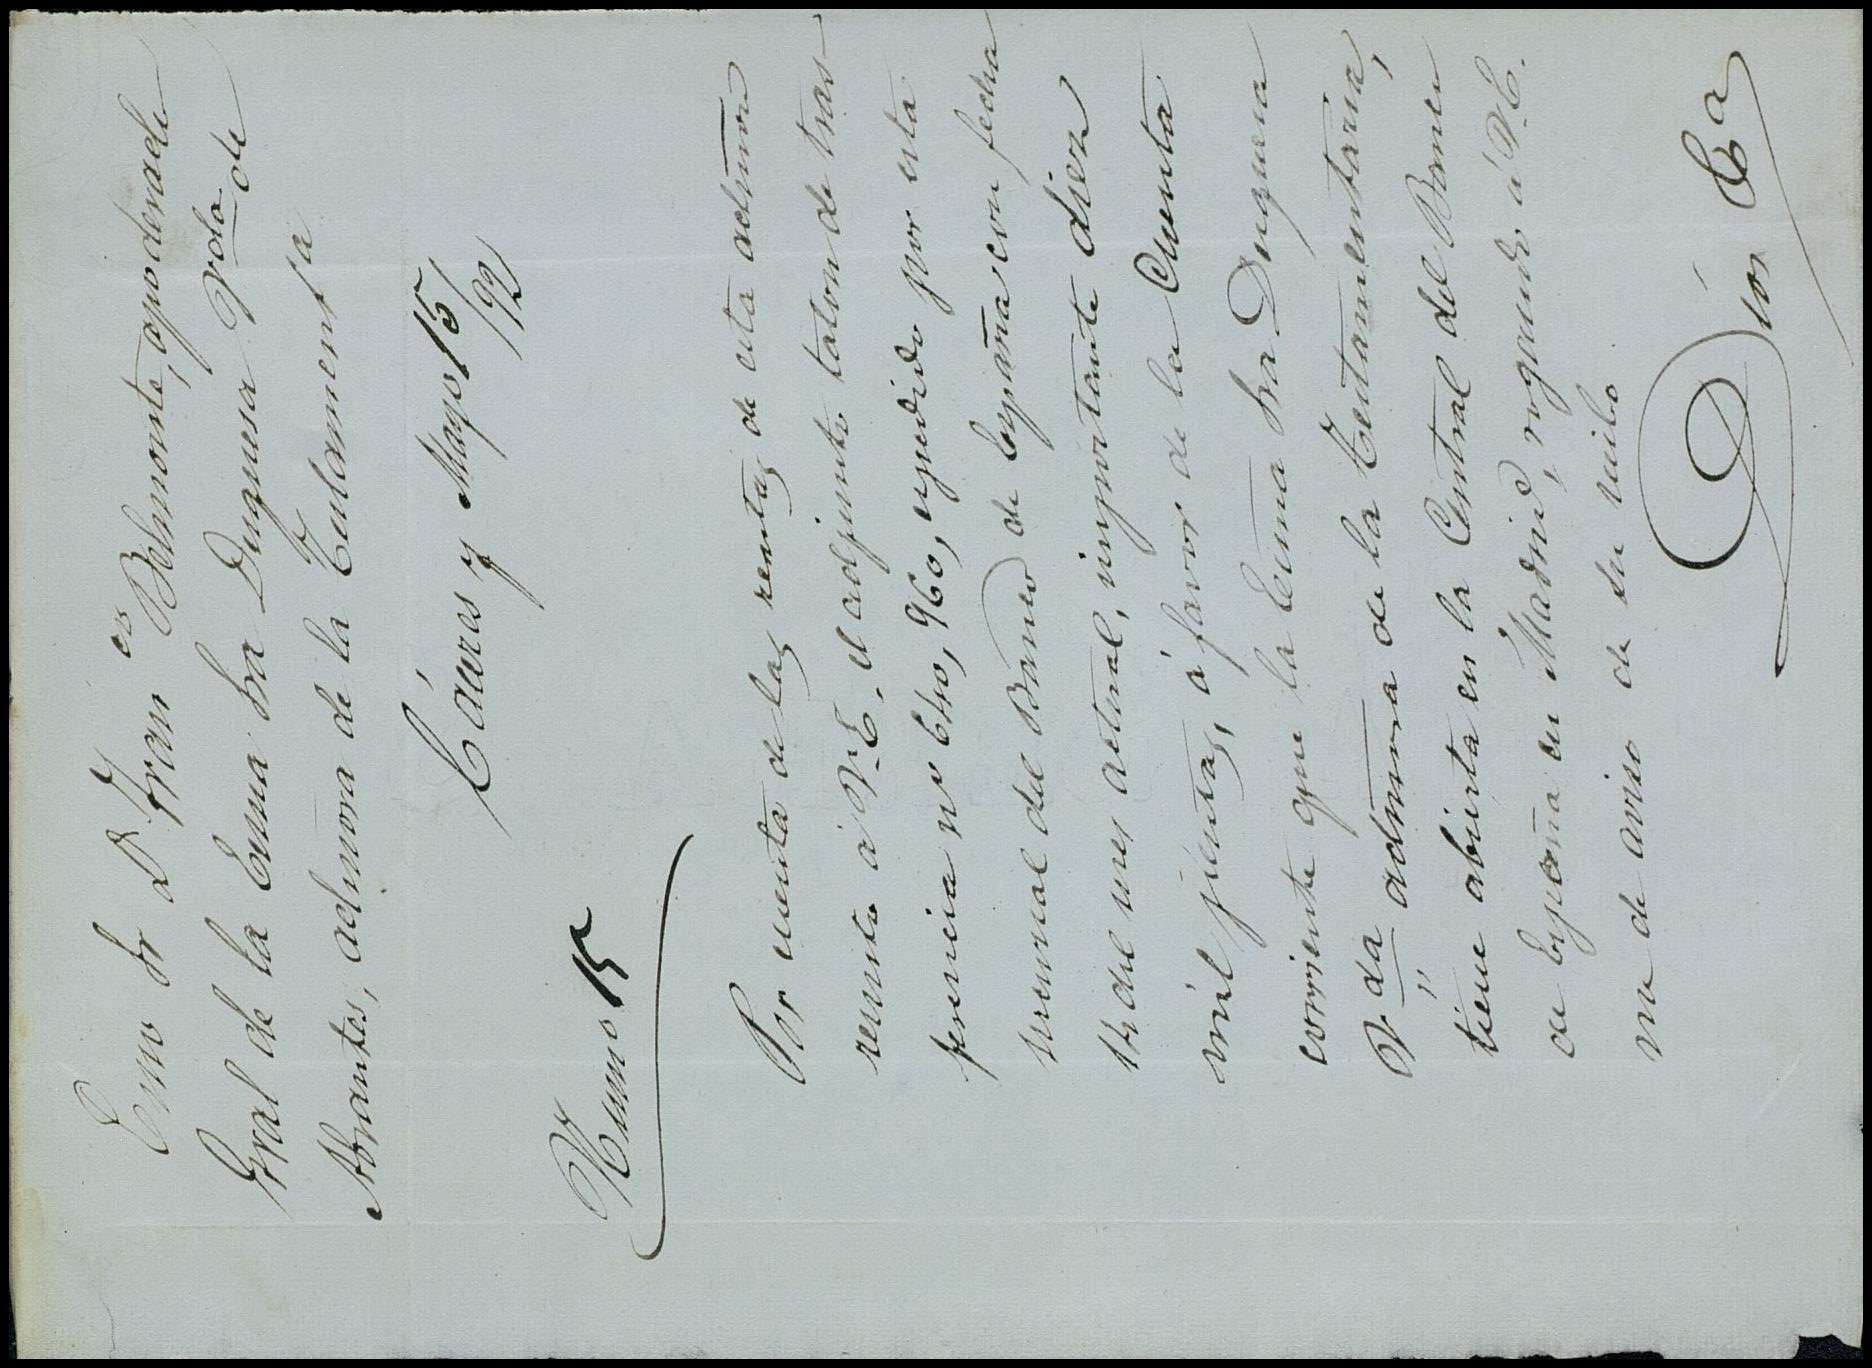 Exmo Sr D. Fran.co Belmonte, apoderado
Gral de la Exma Sra Duquesa Vda de
Abrantes, admora de la Testament.ria
Cáceres y Mayo 15/92
Numo 15
Por cuenta de las rentas de esta admon
remito á V.E. el adjunto talon de tras-
ferencia nº 960, expedido por esta
sucursal del Banco de España con fecha
del mes actual, importante diez
mil pesetas, á favor de la Cuenta
corriente que la Exma Sra Duquesa
Vda admora de la Testamentaria,
tiene abierta en la Central del Banco
de España en Madrid, rogando á V.E.
me de aviso de su recibo